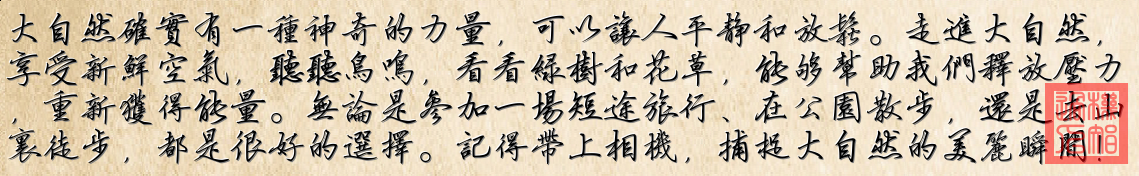 大自然確實有一種神奇的力量，可以讓人平靜和放鬆。走進大自然，
享受新鮮空氣，聽聽鳥鳴，看看綠樹和花草，能夠幫助我們釋放壓力
，重新獲得能量。無論是參加一場短途旅行、在公園散步，還是去山
裏徒步，都是很好的選擇。記得帶上相機，捕捉大自然的美麗瞬間！